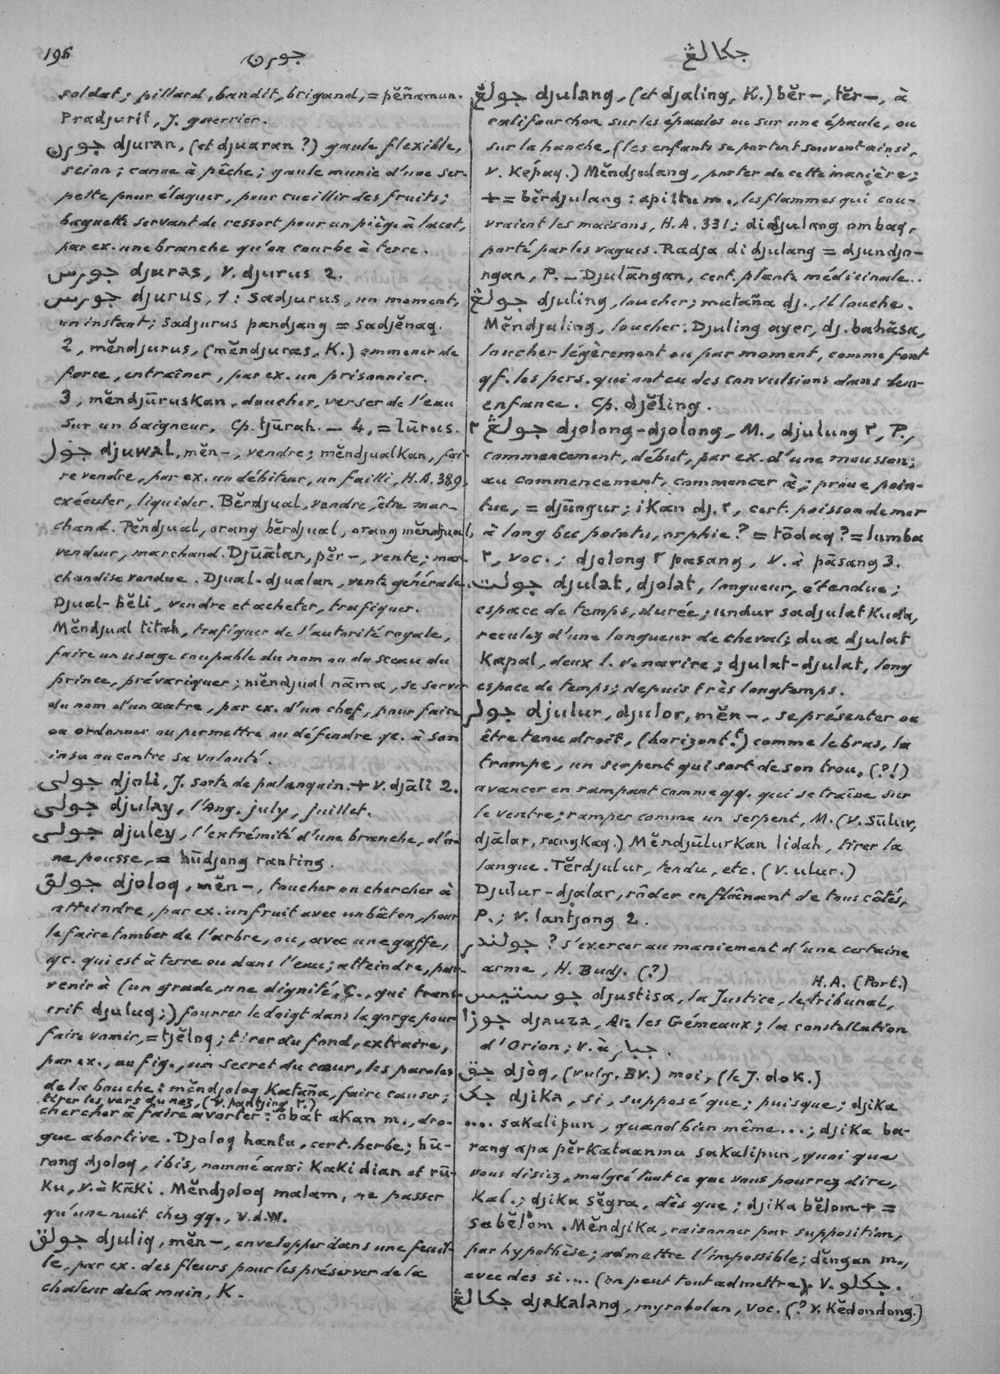 196
جورن
جکالڠ
soldat; pillard, bandit, brigand, = pĕñamun.
Pradjurit, J. guerrier.
جورن djuran, (et djuaran ?) gaule flexible,
scion; canne à pêche; gaule munie d'une ser-
pette pour élaguer, pour cueillir des fruits;
baguette servant de ressort pour un piège à lacet,
par ex. une branche qu'on courbe à terre.
جورس djuras, v. djurus 2.
جورس djurus, 1: Sadjurus, un moment,
un instant; sadjurus pandjang = sadjĕnaq.
2, mĕndjurus, (mĕndjuras, K.) emmener de
force, entraîner, par ex. un prisonnier.
3, mĕndjūruskan, doucher, verser de l'eau
sur un baigneur. Cp. tjūrah. — 4, = lūrus.
جول djuwal, mĕn-, vendre; mĕndjualkan, fai-
re vendre, par ex. un débiteur, un failli, H.A. 389,
exécuter, liquider. Bĕrdjual, vendre, être mar-
chand. Pĕndjual, orang bĕrdjual, orang mĕndjual,
vendeur, marchand. Djūālan, pĕr-, vente; mar-
chandise vendue. Djual-djualan, vente générale.
Djual-bĕli, vendre et acheter, trafiquer.
Mĕndjual titah, trafiquer de l'autorité royale,
faire un usage coupable du nom ou du sceau du
prince, prévariquer; mĕndjual nāma, se servir
du nom d'un autre, par ex. d'un chef, pour faire
ou ordonner ou permettre ou défendre qc. à son
insu ou contre sa volonté.
جولی djoli, J. sorte de palanquin. + v. djāli 2.
جولی djulay, l'Ang. july, juillet.
جولی djuley, l'extrémité d'une branche, d'u-
ne pousse, = hūdjong ranting.
جولق djoloq, mĕn-, toucher ou chercher à
atteindre, par ex. un fruit avec un bâton, pour
le faire tomber de l'arbre, ou, avec une gaffe,
qc. qui est à terre ou dans l'eau; atteindre, par-
venir à (un grade, une dignité, Ç., qui trans-
crit djuluq;) fourrer le doigt dans la gorge pour
faire vomir, = tjĕloq; tirer du fond, extraire,
par ex., au fig., un secret du cœur, les paroles
de la bouche: mĕndjoloq kataña, faire causer;
tirer les vers du nez, (v. pantjing ٢.)
chercher à faire avorter: ōbat akan m., dro-
gue abortive. Djoloq hantu, cert. herbe; bū-
rong djoloq, ibis, nommé aussi kaki dian et rū-
ku, v. à kāki. Mĕndjoloq malam, ne passer
qu'une nuit chez qq., v.d.W.
جولق djuliq, mĕn-, envelopper dans une feuil-
le, par ex. des fleurs pour les préserver de la
chaleur de la main, K.
جولڠ djulang, (et djaling, K.) bĕr-, tĕr-, à
califourchon sur les épaules ou sur une épaule, ou
sur la hanche, (les enfants se portent souvent ainsi,
v. Képaq.) Mĕndjulang, porter de cette manière;
+ = bĕrdjulang: api itu m., les flammes qui cou-
vraient les maisons, H.A. 331; didjulang ombaq,
porté par les vagues. Radja di djulang = djundjo-
ngan, P. — Djulāngan, cert. plante médicinale.
جولڠ djuling, loucher; mataña dj., il louche.
Mĕndjuling, loucher. Djuling ayer, dj. bahāsa,
loucher légèrement ou par moment, comme font
qf. les pers. qui ont eu des convulsions dans leur
enfance. Cp. djĕling.
جولڠ ٢ djolong-djolong, M., djulung ٢, P.,
commencement, début, par ex. d'une mousson;
au commencement, commencer à; proue poin-
tue, = djūngur; ikan dj. ٢, cert. poisson de mer
à long bec pointu, orphie ? = tōdaq ? = lumba
٢, voc.; djolong ٢ pasang, v. à pāsang 3.
جولت djulat, djolat, longueur, étendue;
espace de temps, durée; undur sadjulat kuda,
reculez d'une longueur de cheval; dua djulat
kapal, deux l. de navire; djulat-djulat, long
espace de temps; depuis très longtemps.
جولر djulur, djulor, mĕn-, se présenter ou
être tenu droit, (horizont.t) comme le bras, la
trompe, un serpent qui sort de son trou, (?!)
avancer en rampant comme qq. qui se traîne sur
le ventre; ramper comme un serpent, M. (v. sūlur,
djālar, rangkaq.) Mĕndjūlurkan lidah, tirer la
langue. Tĕrdjulur, tendu, etc. (v. ulur.)
Djulur-djalar, rôder en flânant de tous côtés,
P.; v. lantjong 2.
جولندر ? s'exercer au maniement d'une certaine
arme, H. Budj. (?)
H.A. (Port.)
جوستيس djustisa, la Justice, le tribunal,
جوزا djauza, Ar. les Gémeaux; la constellation
d'Orion; v. à جبار.
جق djòq, (vulg. BV.) moi, (le J. dok.)
جک djika, si, supposé que; puisque; djika
.... sakalipun, quand bien même...; djika ba-
rang apa pĕrkataanmu sakalipun, quoi que
vous disiez, malgré tout ce que vous pourrez dire,
Kal.; djika sĕgra, dès que; djika bĕlom + =
sabĕlom. Mĕndjika, raisonner par supposition,
par hypothèse; admettre l'impossible; dĕngan m.,
avec des si .... (on peut tout admettre). v. جکلو.
جکالڠ djakalang, myrobolan, voc. (? v. Kĕdondong.)